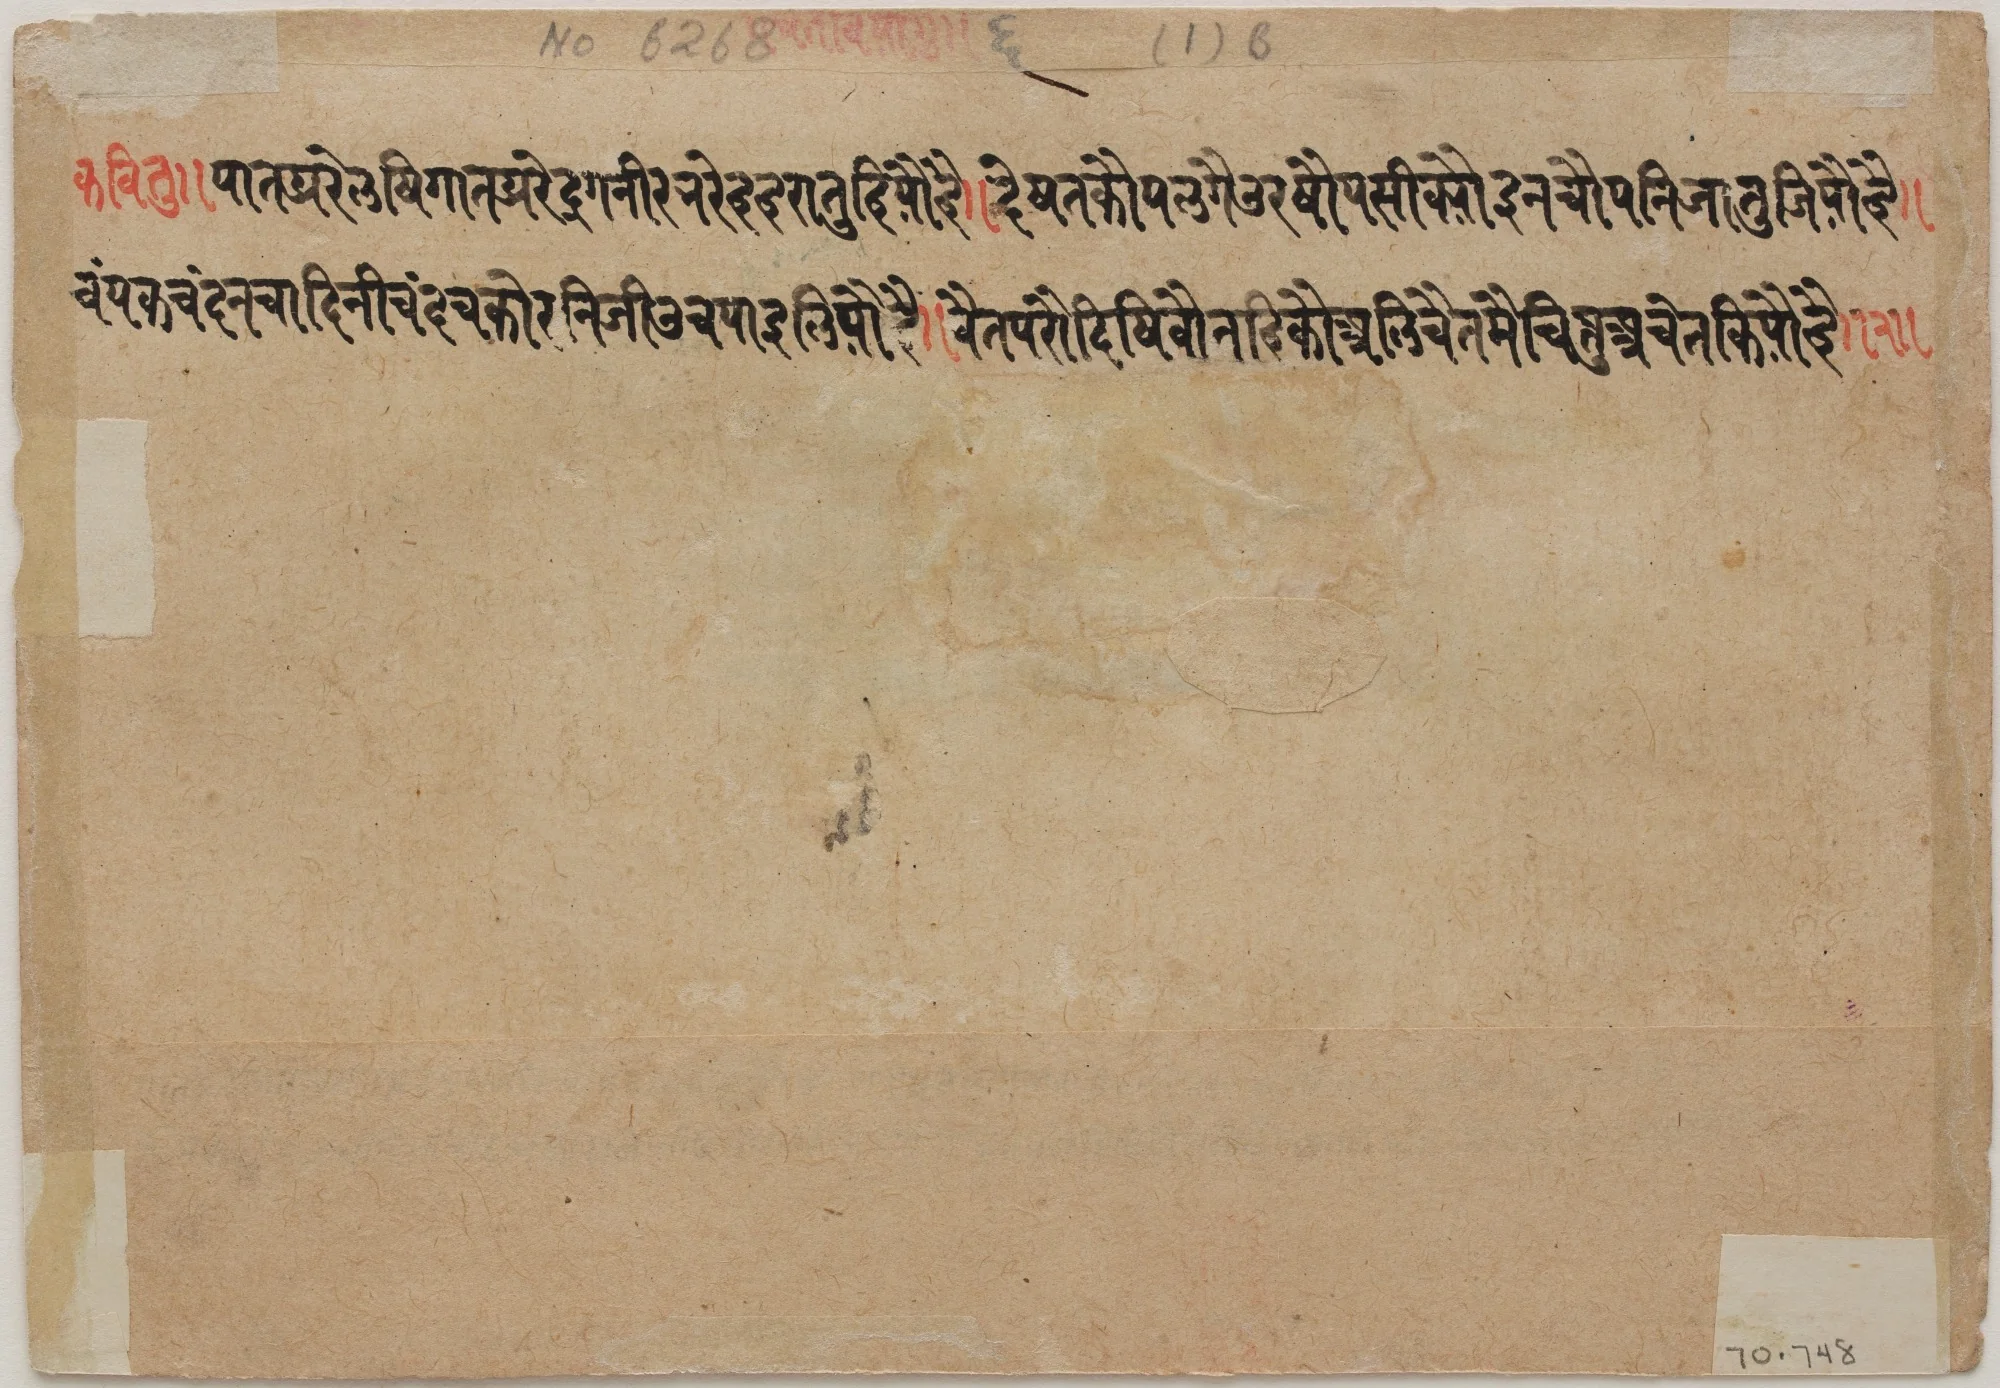 No 6268 ६ (1) 6
कवितु॥ पातझरेलषिगातझरेदृगनीरझरेहहरातुहियोहै॥ देषतकोपलगैउरषोपसीक्योइनचोपनिजातुजियोहै॥
चंपकचंदनचादिनीचंदचकोरनिजीउचपाइलियोहै॥ चैतपरोदिषिवोनहिकोअलिचैतमैचितुअचेतकियोहै॥२॥
70.748